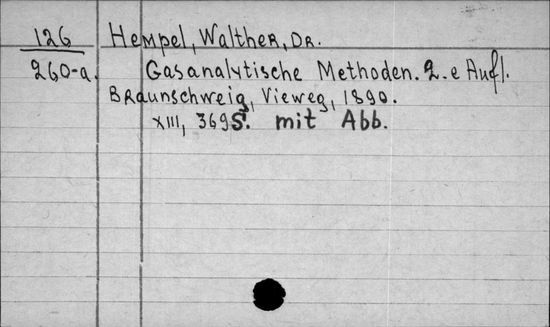 126 Hempel, Walther, Dr.
260-a. Gasanalytische Methoden. 2-e Aufl.
Braunschweig, Vieweg, 1890.
XIII, 369 S. mit Abb.